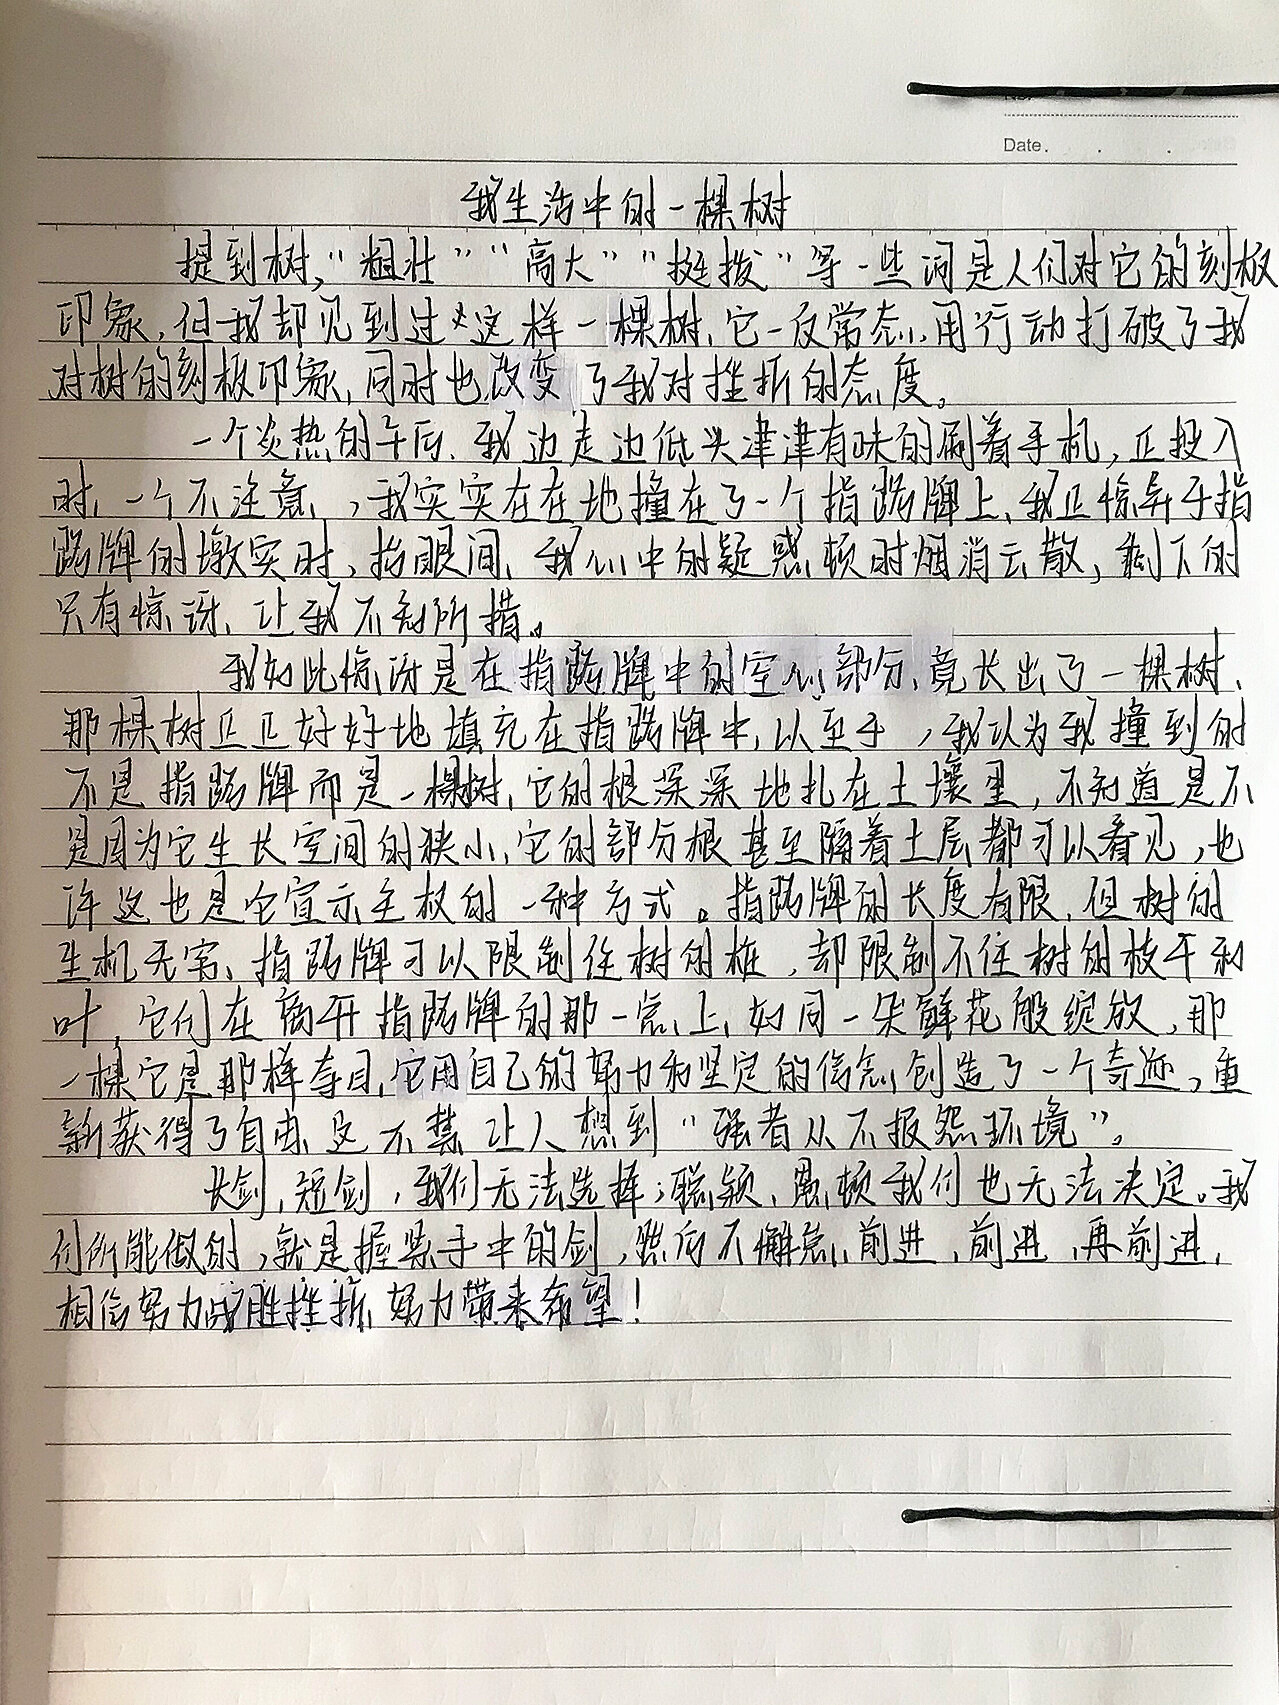 Date.
我生活中的一棵树
提到树,“粗壮”“高大”“挺拨”等一些词是人们对它的刻板
印象,但我却见到过这样一棵树,它一反常态,用行动打破了我
对树的刻板印象,同时也改变了我对挫折的态度。
一个炎热的午后,我边走边低头津津有味的刷着手机,正投入
时,一个不注意,,我实实在在地撞在了一个指路牌上,我正惊异于指
路牌的墩实时,抬眼间,我心中的疑惑顿时烟消云散,剩下的
只有惊讶,让我不知所措。
我如此惊讶是在指路牌中的空心部分,竟长出了一棵树,
那棵树正正好好地填充在指路牌中,以至于,我以为我撞到的
不是指路牌而是一棵树,它的根深深地扎在土壤里,不知道是不
是因为它生长空间的狭小,它的部分根甚至隔着土层都可以看见,也
许这也是它宣示主权的一种方式。指路牌的长度有限,但树的
生机无穷,指路牌可以限制住树的桩,却限制不住树的枝干和
叶,它们在离开指路牌的那一点上,如同一朵鲜花般绽放,那
一棵它是那样夺目,它用自己的努力和坚定的信念,创造了一个奇迹,重
新获得了自由,这不禁让人想到“强者从不报怨环境”。
长剑,短剑,我们无法选择;聪颖,愚顿我们也无法决定。我
们所能做的,就是握紧手中的剑,然后不懈怠,前进,前进,再前进,
相信努力战胜挫折,努力带来希望!